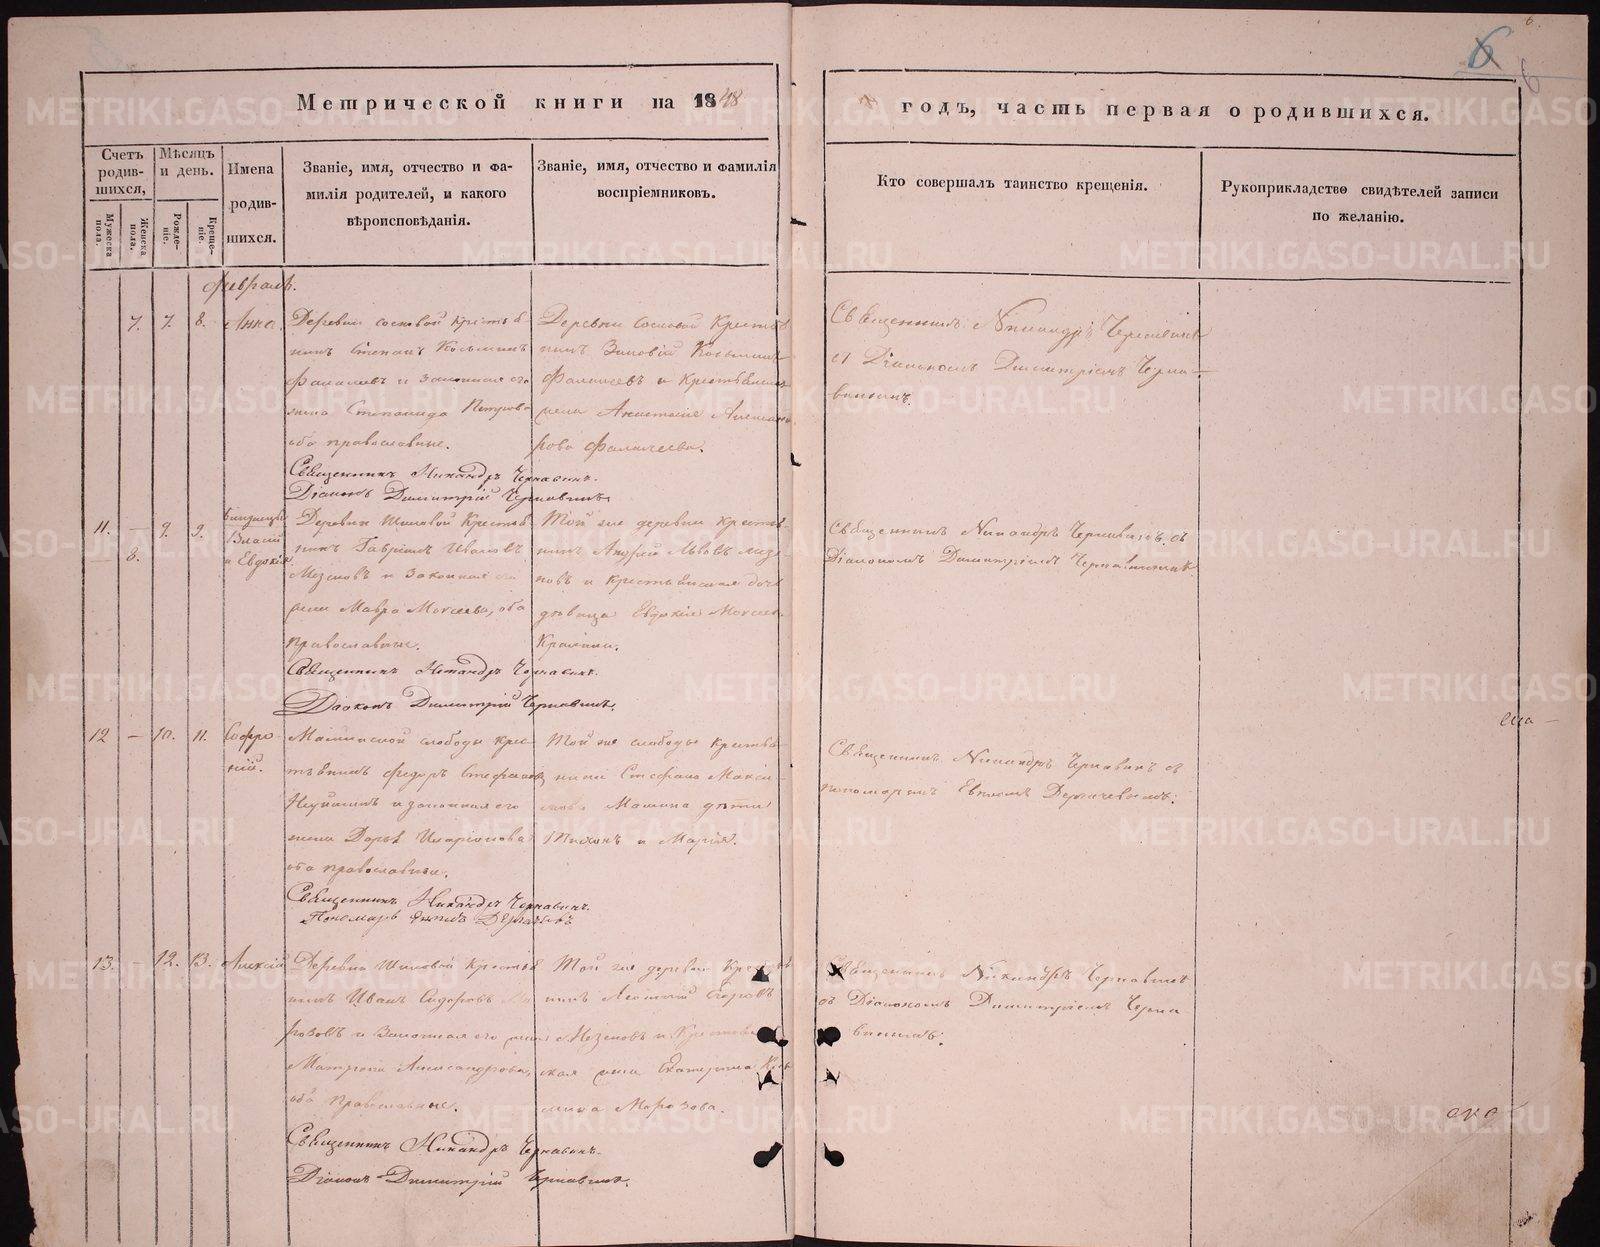 6
6
Метрической книги на 1848
годъ, часть первая о родившихся.
Счетъ родившихся,
Мужеска пола.
Женска пола.
Мѣсяцъ и день.
Рожденіе.
Крещеніе.
Имена родившихся.
Званіе, имя, отчество и фамилія родителей, и какого вѣроисповѣданія.
Званіе, имя, отчество и фамилія воспріемниковъ.
Кто совершалъ таинство крещенія.
Рукоприкладство свидѣтелей записи по желанію.
Февраль.
7. 7. 8. Анна.
Деревни сосновой кресть
нинъ Степанъ Косьминъ
и Законная его
жена Степанида Петрова
оба православные.
Священникъ Никандръ Чернавинъ.
Діаконъ Димитрій Чернавинъ.
Деревни Сосновой Кресть
нинъ Зиновій Косьминъ
и Крестьянская
жена Анастасія
Священникъ Никандръ Чернавинъ
съ Діакономъ Димитріемъ Черна
винымъ.
11. — 9. 9.
8.
Близнецы
Власій
и Евдокія
Деревни Шиловой Крестья
нинъ Гавріилъ Ивановъ
Мезеновъ и Законная его
жена Мавра Моисеева, оба
Православные.
Священникъ Никандръ Чернавинъ.
Діаконъ Димитрій Чернавинъ.
Той же деревни кресть
нинъ Андрей Львовъ Мезе
новъ и крестьянская дочь
дѣвица Евдокія Моисеева
Священникъ Никандръ Чернавинъ съ
Діакономъ Димитріемъ Чернавинымъ
12 — 10. 11. Софро
ній.
слободы крес
тьянинъ Федоръ Стефановъ
и законная его
жена Дарья Иларіонова
оба православные.
Священникъ Никандръ Чернавинъ.
Пономарь Дерябинъ
Той же слободы крестья
нина Стефана Макси
мова Машина дѣти
Тихонъ и Марія.
Священникъ Никандръ Чернавинъ съ
пономаремъ
13. — 12. 13. Алексій
Деревни Шиловой Крестья
нинъ Иванъ Сидоровъ Мо
розовъ и Законная его жена
Матрона Александрова,
оба Православные.
Священникъ Никандръ Чернавинъ.
Діаконъ Димитрій Чернавинъ.
Той же деревни Крестья
нинъ Егоровъ
Мезеновъ и Крестьян
ская жена Екатерина
Морозова.
Священникъ Никандръ Чернавинъ
съ Діакономъ Димитріемъ Черна
винымъ.
METRIKI.GASO-URAL.RU